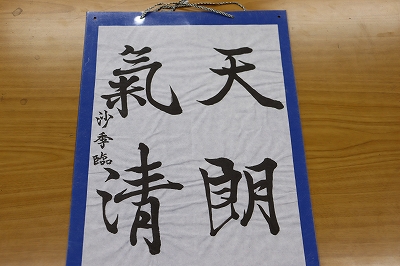 天朗
氣清
沙季臨